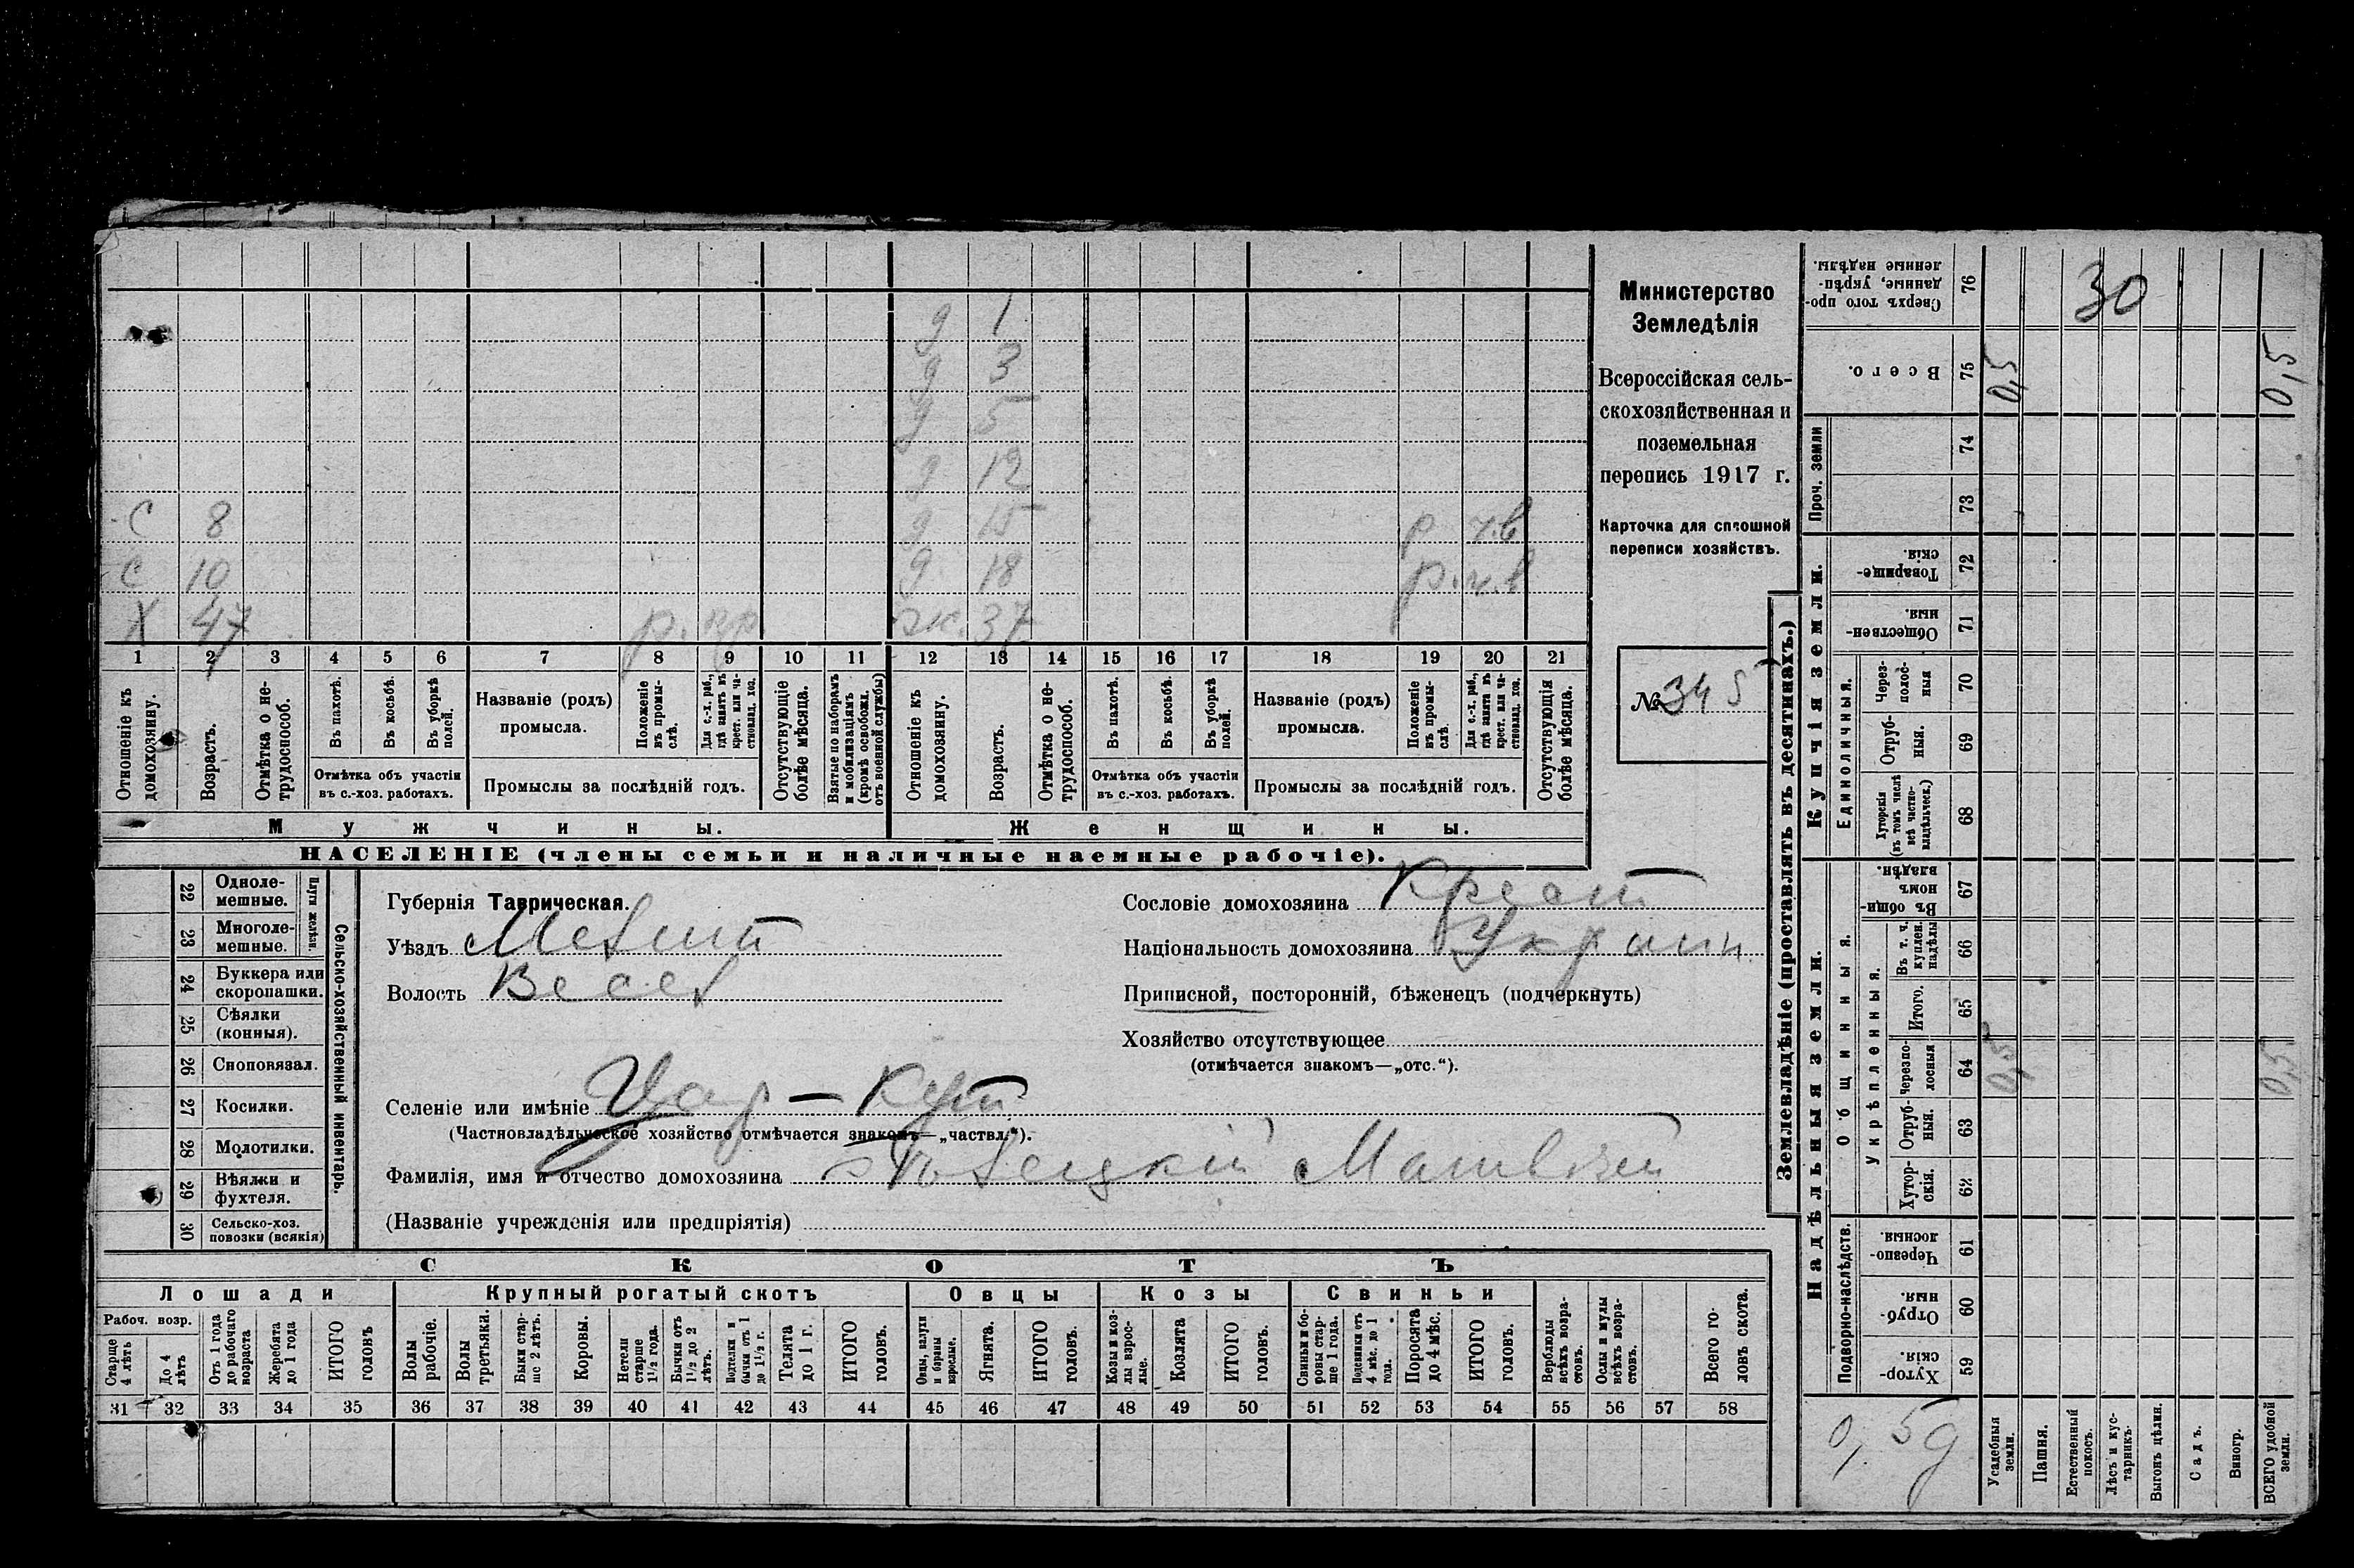 д 1
д 3
д 5
д 12
С 8 д 15 р ч.в
С 10 д 18 р. ч. в
Х 47 р. вр ж. 37
1 2 3 4 5 6 7 8 9 10 11 12 13 14 15 16 17 18 19 20 21
Отношеніе къ домохозяину.
Возрастъ.
Отмѣтка о нетрудоспособ.
Въ пахотѣ.
Въ косьбѣ.
Въ уборкѣ полей.
Отмѣтка объ участіи
въ с.-хоз. работахъ.
Названіе (родъ)
промысла.
Положеніе въ промыслѣ.
Для с.-х. раб., гдѣ занятъ въ крест. или частновлад. хоз.
Промыслы за послѣдній годъ.
Отсутствующіе болѣе мѣсяца.
Взятые по наборамъ и мобилизаціямъ (кромѣ освобожд. отъ военной службы)
Отношеніе къ домохозяину.
Возрастъ.
Отмѣтка о нетрудоспособ.
Въ пахотѣ.
Въ косьбѣ.
Въ уборкѣ полей.
Отмѣтка объ участіи
въ с.-хоз. работахъ.
Названіе (родъ)
промысла.
Положеніе въ промыслѣ.
Для с.-х. раб., гдѣ занята въ крест. или частновлад. хоз.
Промыслы за послѣдній годъ.
Отсутствующія болѣе мѣсяца.
Мужчины.
Женщины.
НАСЕЛЕНІЕ (члены семьи и наличные наемные рабочіе).
Министерство
Земледѣлія
Всероссійская сель-
скохозяйственная и
поземельная
перепись 1917 г.
Карточка для сплошной
переписи хозяйствъ.
№ 345
Сельско-хозяйственный инвентарь.
Плуги желѣзн.
22 Одноле-
мешные.
23 Многоле-
мешные.
24 Буккера или
скоропашки.
25 Сѣялки
(конныя).
26 Сноповязал.
27 Косилки.
28 Молотилки.
29 Вѣялки и
фухтеля.
30 Сельско-хоз.
повозки (всякія)
Губернія Таврическая.
Уѣздъ Мелит
Волость Весел
Селеніе или имѣніе Цар-Кут
(Частновладѣльческое хозяйство отмѣчается знакомъ—„частвл.“).
Фамилія, имя и отчество домохозяина Матвѣй
(Названіе учрежденія или предпріятія)
Сословіе домохозяина Крест
Національность домохозяина Украин.
Приписной, посторонній, бѣженецъ (подчеркнуть)
Хозяйство отсутствующее
(отмѣчается знакомъ—„отс.“).
СКОТЪ
Лошади
Крупный рогатый скотъ
Овцы
Козы
Свиньи
Рабоч. возр.
Старше 4 лѣтъ
До 4 лѣтъ
Отъ 1 года до рабочаго возраста
Жеребята до 1 года
ИТОГО головъ
Волы рабочіе.
Волы третьяки.
Быки старше 2 лѣтъ.
Коровы.
Нетели старше 1½ года.
Бычки отъ 1½ до 2 лѣтъ.
Подтелки и бычки отъ 1 до 1½ г.
Телята до 1 г.
ИТОГО головъ.
Овцы, валухи и бараны взрослые.
Ягнята.
ИТОГО головъ.
Козы и козлы взрослые.
Козлята
ИТОГО головъ.
Свиньи и боровы старше 1 года.
Подсвинки отъ 4 мѣс. до 1 года.
Поросята до 4 мѣс.
ИТОГО головъ.
Верблюды всѣхъ возрастовъ.
Ослы и мулы всѣхъ возрастовъ.
Всего головъ скота.
31 32 33 34 35 36 37 38 39 40 41 42 43 44 45 46 47 48 49 50 51 52 53 54 55 56 57 58
Землевладѣніе (проставлять въ десятинахъ.)
Сверхъ того проданные, укрѣпленные надѣлы. 76 30
Всего. 75 0,5 0,5
Проч. земли
74
73
Купчія земли.
Товарищескія. 72
Общественныя. 71
Единоличныя.
Черезполосныя 70
Отрубныя. 69
Хуторскія (въ томъ числѣ всѣ частновладѣльческ.) 68
Надѣльныя земли.
Общинныя.
Въ общинномъ владѣн. 67
Укрѣпленныя.
Въ т. ч. куплен. надѣлы 66
Итого. 65
Черезполосныя 64 0,5 0,5
Отрубныя. 63
Хуторскія. 62
Подворно-наслѣдств.
Черезполосныя. 61
Отрубныя. 60
Хуторскія. 59
0,5 д
Усадебныя земли.
Пашня.
Естественный покосъ.
Лѣсъ и кустарникъ.
Выгонъ цѣлин.
Садъ.
Виногр.
ВСЕГО удобной земли.